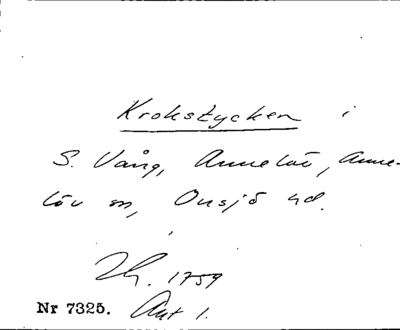 Krokstycken i
S. Vång, Annelöv, Anne-
löv sn, Onsjö hd.
Lh. 1759
Nr 7325. Akt 1.